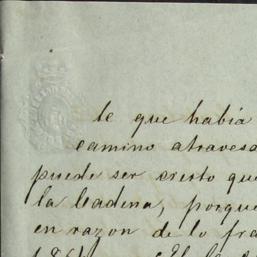 le que había
camino atravesa
puede ser cierto que
la Cadena, porque
en razon de lo fra